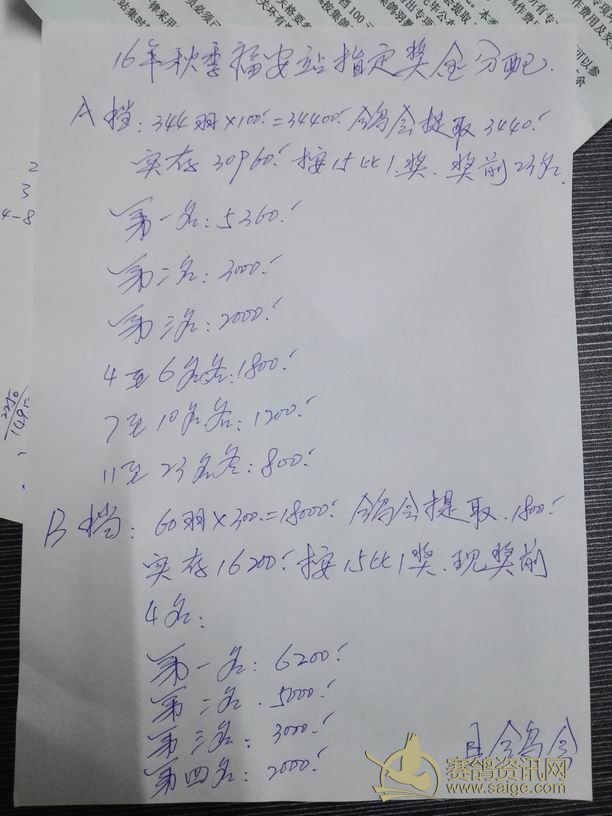 16年秋季福安站指定奖金分配.
A档: 344羽×100.=34400. 鸽会提取3440.
实存30960. 按15比1奖. 奖前23名.
第一名: 5360.
第二名: 3000.
第三名: 2000.
4至6名各: 1800.
7至10名各: 1200.
11至23名各: 800.
B档: 60羽×300.=18000. 鸽会提取. 1800.
实存16200. 按15比1奖. 现奖前
4名:
第一名: 6200.
第二名. 5000.
第三名: 3000.
第四名: 2000.
鸽会
2
3
4-8
赛鸽资讯网
www.saige.com